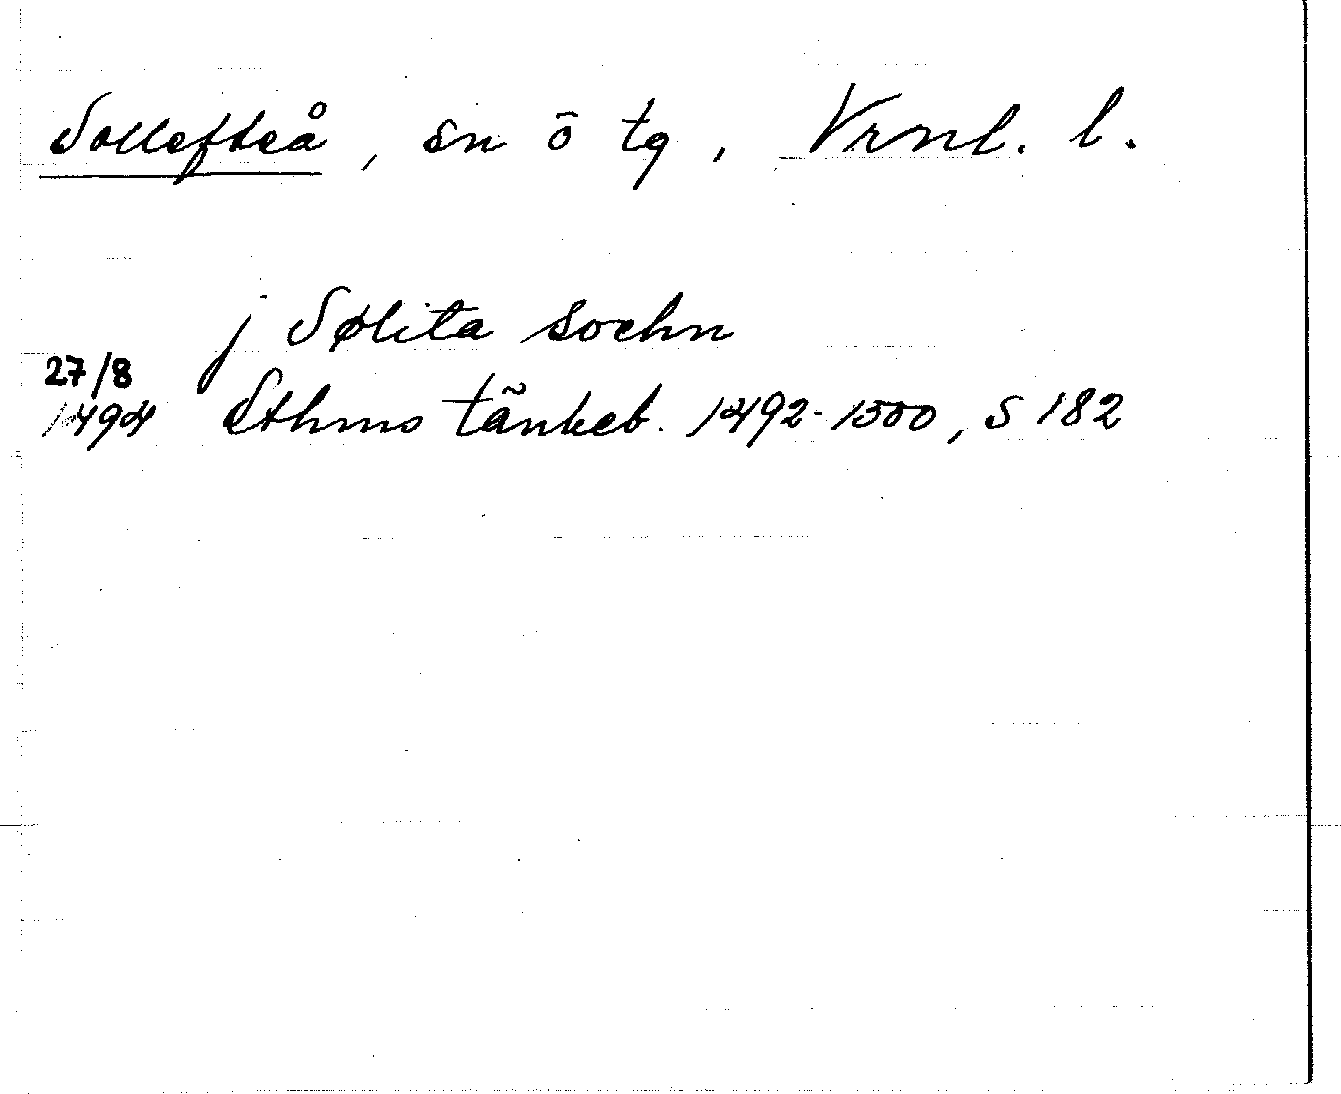 Sollefteå, sn ö tg, Vrnl. l.
j Sølita sochn
27/8
1494 Sthms tänkeb. 1492-1500, S 182